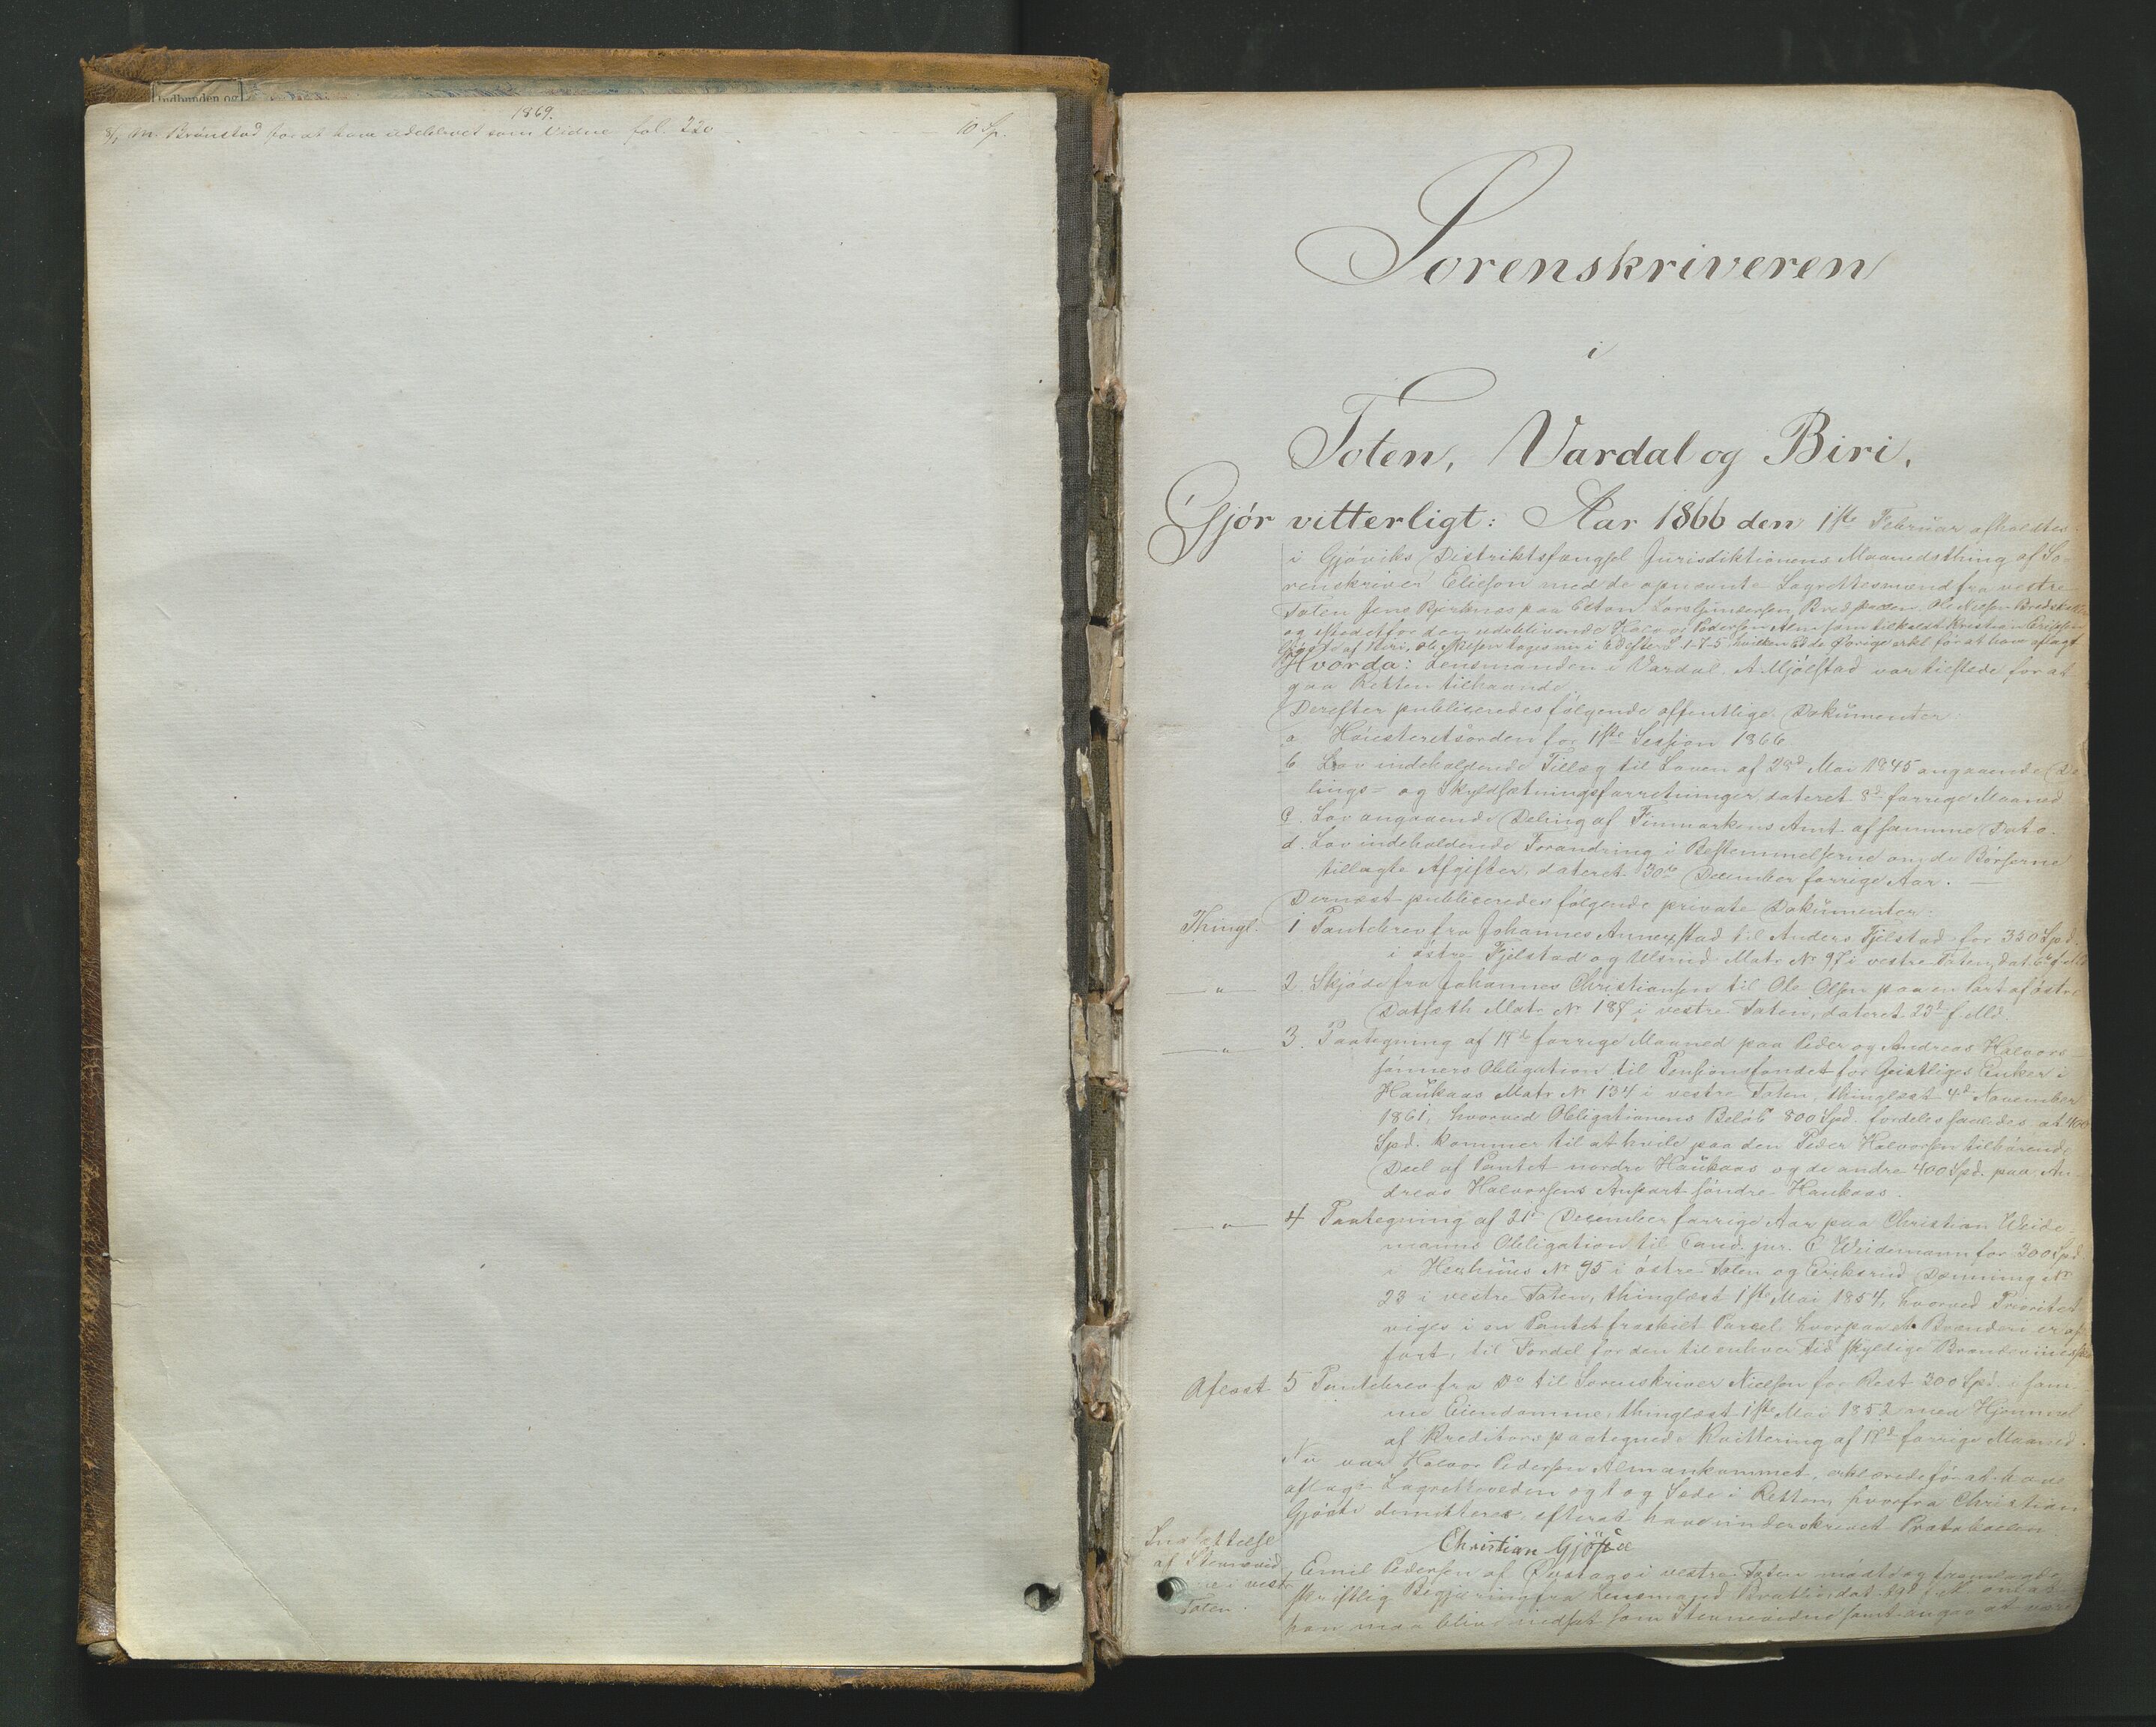 Indbunden og
1869.
8/7 M. Brünstad for at have udeblevet som Vidne fol. 220 10 Sp.
Sorenskriveren
i
Toten, Vardal og Biri,
Gjör vitterligt: Aar 1866 den 1ste Februar afholdtes
i Gjöviks Distriktsfængsel Jurisdiktionens Maanedsthing af So-
renskriver Eliesen med de opnævnte Lagrettesmænd fra vestre
Toten Jens Bjerknes paa Ole Nielsen
og istedetfor den udeblivende Halvor Pedersen Alm som tilkaldt Kristian
Gjöste af Biri, Ole Nielsen toges nu i Ed efter L 1-7-5, hvilken Ed de Övrige erkl. för at have aflagt
Hvorda: Lensmanden i Vardal, A. Mjölstad var tilstede for at
gaa Retten tilhaande.
Derefter publiceredes fölgende offentlige Dokümenter:
a Höiesteretsorden for 1ste Session 1866
b Lov indeholdende Tillæg til Loven af 28d Mai 1845 angaaende De-
lings- og Skyldsætningsforretninger dateret 8d forrige Maaned
c. Lov angaaende Deling af Finmarkens Amt af samme Dato.
d. Lov indeholdende Forandring i Bestemmelserne om de Börserne
tillagte Afgifter, dateret 30te December forrige Aar. —
Dernæst publiceredes fölgende private Dokümenter:
Thingl. 1 Pantebrev fra Johannes Annexstad til Anders Fjelstad for 350 Spd.
i östre Fjelstad og Ulsrud Matr. No 97 i vestre Toten, dat.
—"— 2. Skjöde fra Johannes Christiansen til Ole Olsen paa en Part af östre
Dotseth Matr No 187 i vestre Toten, dateret 23d f. Md.
—"— 3. Paategning af 17de forrige Maaned paa Peder og Andreas Halvors-
sönners Obligation til Pensionsfondet for Geistliges Enker i
Haükaas Matr No 134 i vestre Toten, thinglæst 4d November
1861, hvorved Obligationens Belöb 800 Spd. fordeles saaledes, at 400
Spd. kommer til at hvile paa den Peder Halvorsen tilhörende
Deel af Pantet nordre Haükaas og de andre 400 Spd. paa An-
dreas Halvorsens Anpart söndre Haukaas.
—"— 4 Paategning af 21d December forrige Aar paa Christian Weide-
manns Obligation til Cand. jur. C Weidemann for 300 Spd.
i No 95 i östre Toten og Eriksrud Dæmning No
23 i vestre Toten, thinglæst 1ste Mai 1854, hvorved Prioritet
viges i en Pantet fraskilt Parcel, hvorpaa et Brænderi er op-
fört, til Fordel for den til enhver tid skyldige
Aflæst 5 Pantebrev fra Do til Sorenskriver Nielsen for Rest 300 Spd. i sam-
me Eiendomme, thinglæst 1ste Mai 1852 med Hjemmel
af Kreditors paategnede Kvittering af 17d forrige Maaned.
Nu var Halvor Pedersen Alm ankommet, erklærede för at have
aflagt Lagretteseden og tog Sæde i Retten, hvorfra Christian
Gjöste demitteres, efterat have underskrevet Protokollen
Christian Gjöste
Indsættelse
af Stevnevid
ne i vestre
Toten.
Emil Pedersen af i vestre Toten mödte og fremlagde
skriftlig Begjæring fra Lensmand Bratlie dat. om at
han maa blive indsat som Stevnevidne samt